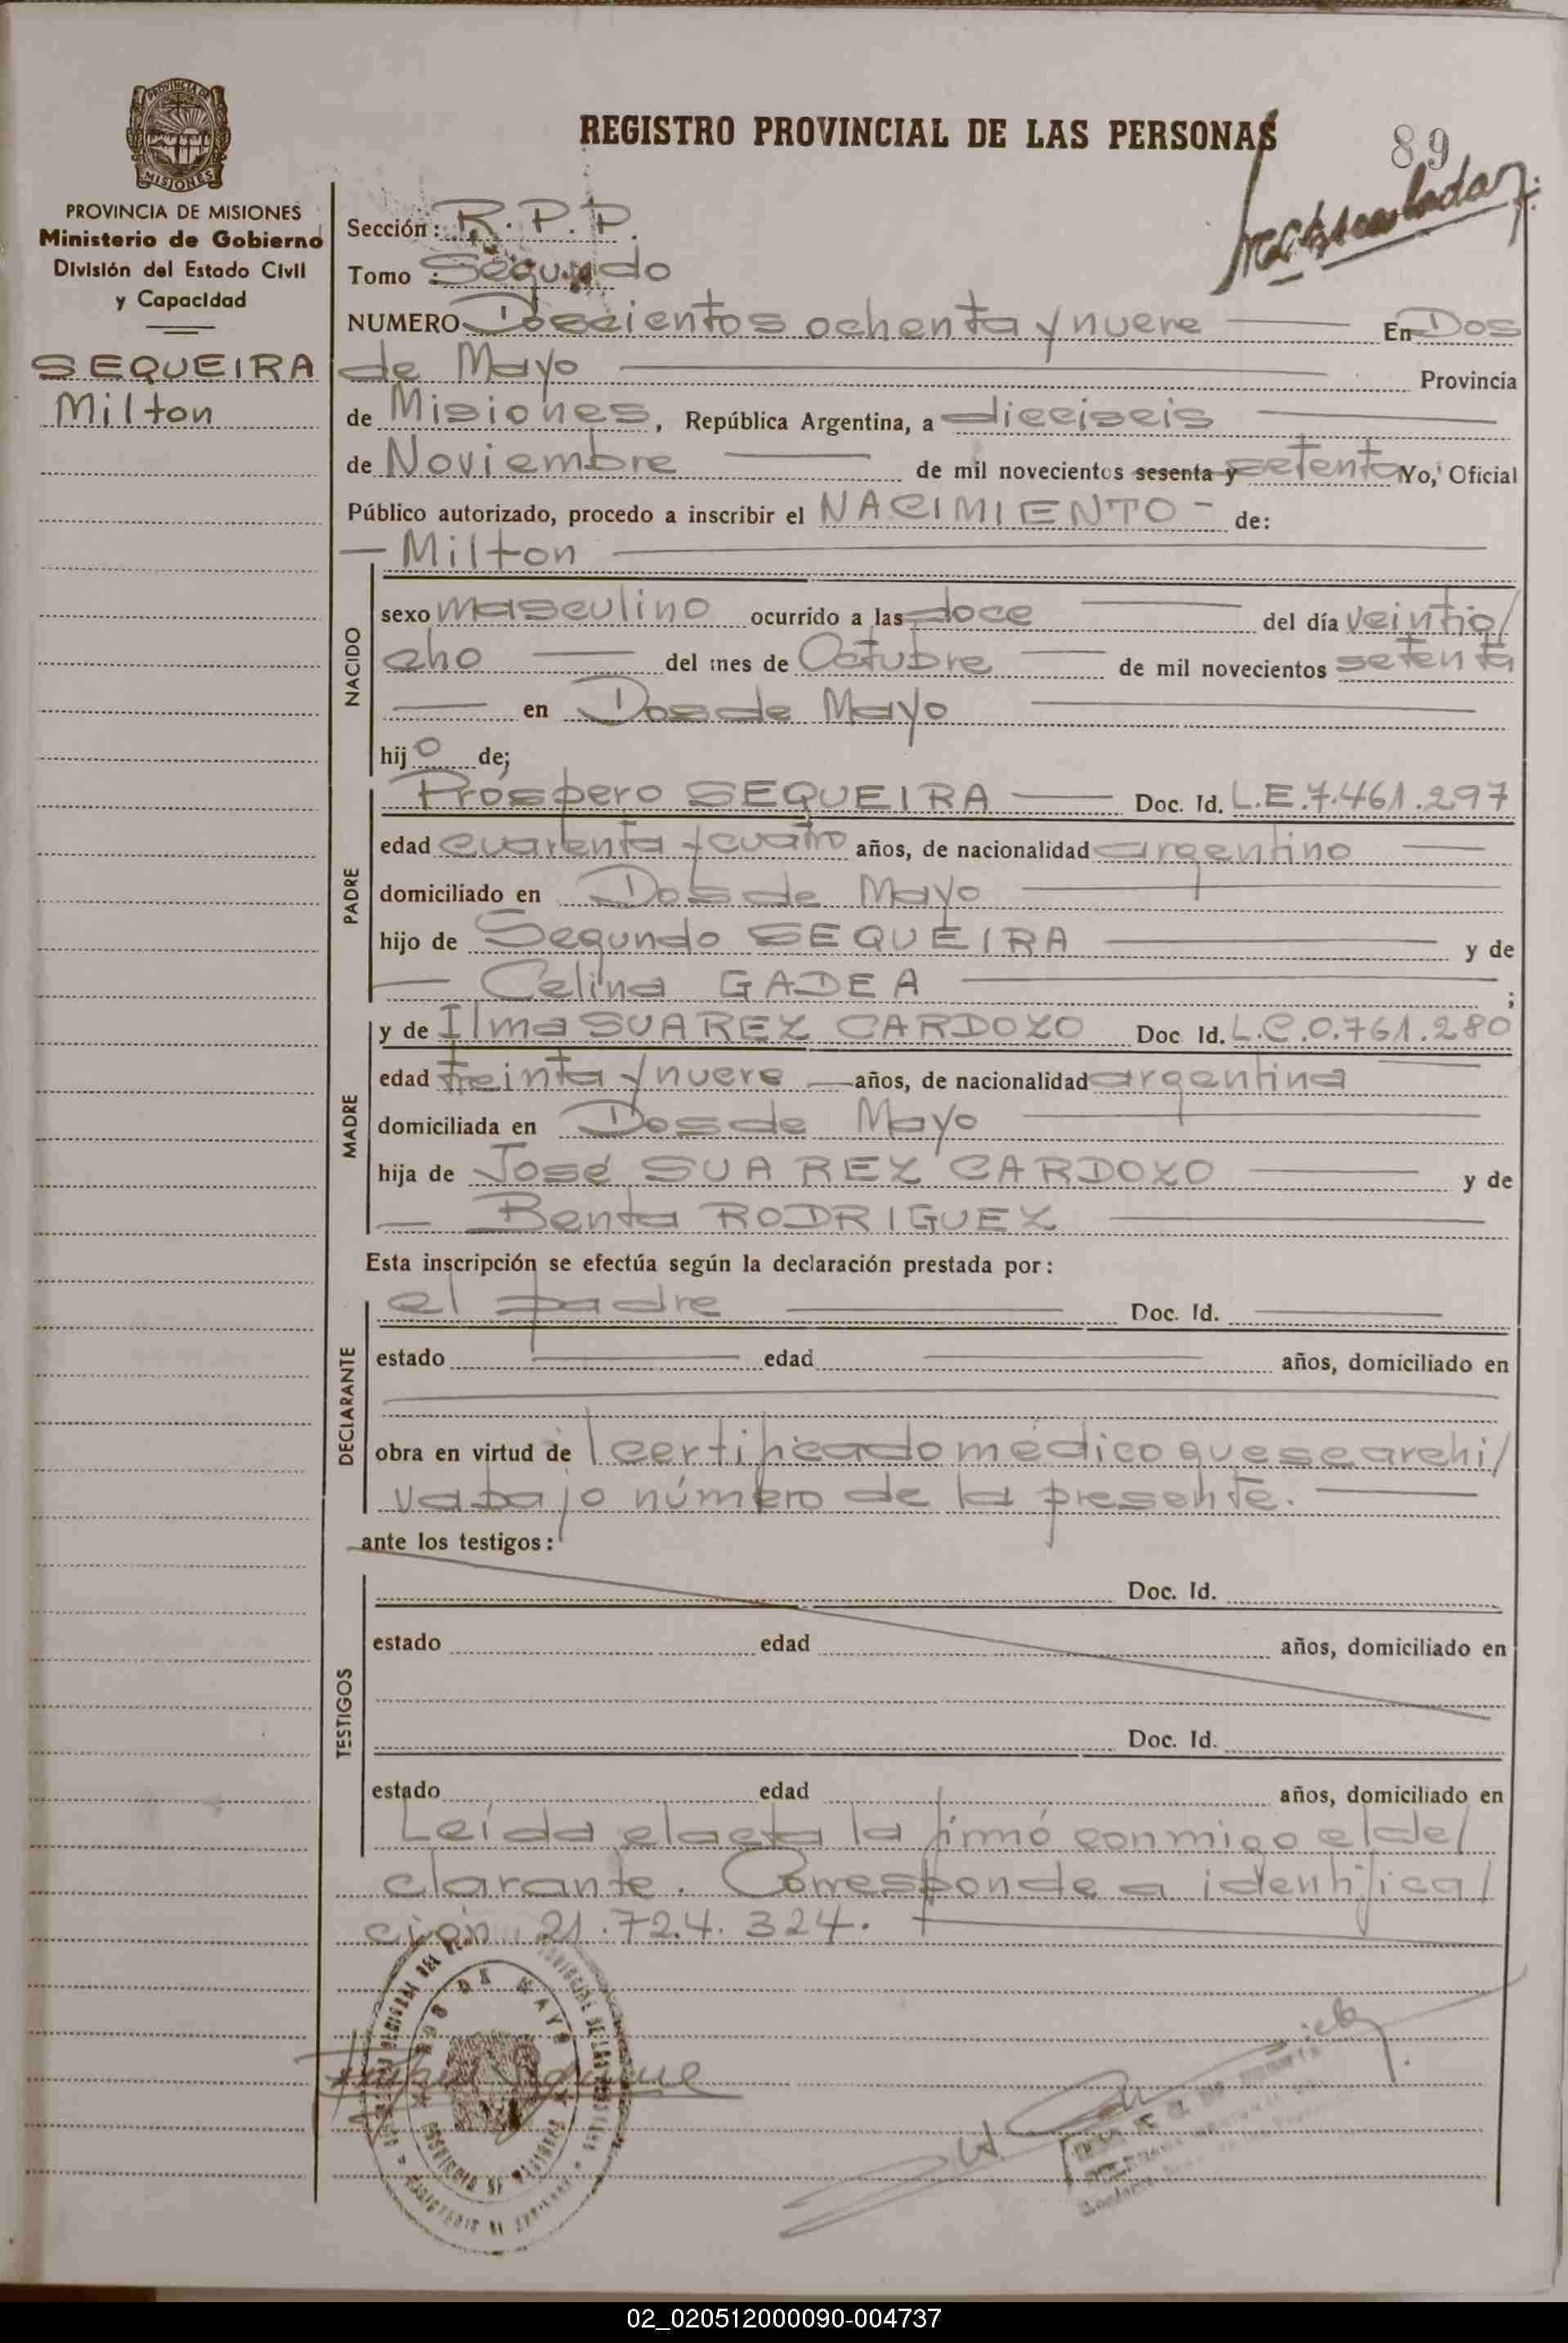 REGISTRO PROVINCIAL DE LAS PERSONAS
89
PROVINCIA DE
MISIONES
PROVINCIA DE MISIONES
Ministerio de Gobierno
División del Estado Civil
y Capacidad
SEQUEIRA
Milton
Sección: R.P.P.
Tomo : Segundo
NUMERO Doscientos ochenta y nueve En Dos
de Mayo Provincia
de Misiones, República Argentina, a dieciseis
de Noviembre de mil novecientos sesenta y setenta Yo, Oficial
Público autorizado, procedo a inscribir el NACIMIENTO - de:
— Milton
NACIDO
sexo masculino ocurrido a las doce del día veintio/
cho del mes de Octubre de mil novecientos setenta
en Dos de Mayo
hijo de;
PADRE
Próspero SEQUEIRA Doc. Id. L.E.7.461.297
edad cuarenta y cuatro años, de nacionalidad argentino
domiciliado en Dos de Mayo
hijo de Segundo SEQUEIRA y de
— Celina GADEA ;
MADRE
y de Ilma SUAREZ CARDOZO Doc Id. L.C.0.761.280
edad treinta y nueve años, de nacionalidad argentina
domiciliada en Dos de Mayo
hija de José SUAREZ CARDOZO y de
— Benta RODRIGUEZ
Esta inscripción se efectúa según la declaración prestada por:
DECLARANTE
el padre Doc. Id.
estado edad años, domiciliado en
obra en virtud de l certificado médico que se archi/
va bajo número de la presente.
ante los testigos:
TESTIGOS
Doc. Id.
estado edad años, domiciliado en
Doc. Id.
estado edad años, domiciliado en
Leída el acta la firmó conmigo el de/
clarante. Corresponde a identifica/
ción 21.724.324.
DOS DE MAYO
PROVINCIA DE MISIONES
02_020512000090-004737